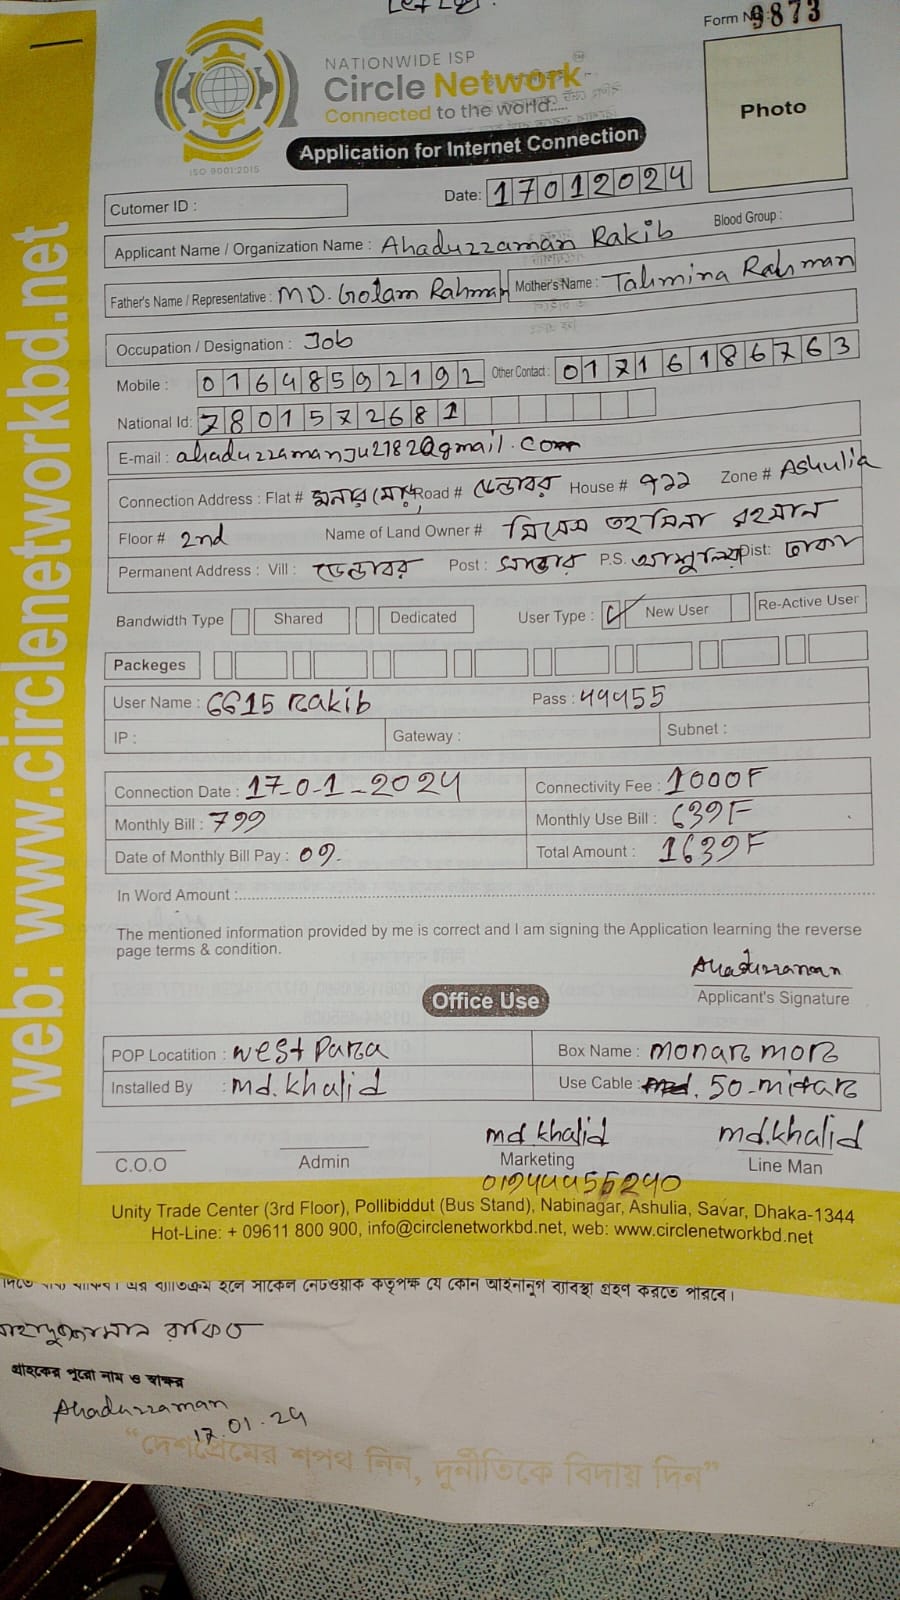 Form No: 9873
NATIONWIDE ISP
Circle Network
Connected to the world.....
ISO 9001:2015
Application for Internet Connection
Photo
Cutomer ID :
Date: 17012024
Applicant Name / Organization Name : Ahaduzzaman Rakib Blood Group :
Father's Name / Representative : MD. Golam Rahman Mother's Name : Tahmina Rahman
Occupation / Designation : Job
Mobile : 01648592192 Other Contact : 01716186763
National Id: 7801572681
E-mail : ahaduzzamanju2182@gmail.com
Connection Address : Flat # মনার মোড় Road # ডেন্ডাবর House # 922 Zone # Ashulia
Floor # 2nd Name of Land Owner # মিসেস তহমিনা রহমান
Permanent Address : Vill : ডেন্ডাবর Post : সাভার P.S. আশুলিয়া Dist: ঢাকা
Bandwidth Type Shared Dedicated User Type : New User Re-Active User
Packeges
User Name : 6615 Rakib Pass : 49455
IP : Gateway : Subnet :
Connection Date : 17-0-1-2024 Connectivity Fee : 1000F
Monthly Bill : 799 Monthly Use Bill : 639F
Date of Monthly Bill Pay : 09. Total Amount : 1639F
In Word Amount :
The mentioned information provided by me is correct and I am signing the Application learning the reverse
page terms & condition.
Ahaduzzaman
Applicant's Signature
Office Use
POP Locatition : West Para Box Name : monar mor
Installed By : md. khalid Use Cable : 50-mitar
md khalid md.khalid
C.O.O Admin Marketing Line Man
Unity Trade Center (3rd Floor), Pollibiddut (Bus Stand), Nabinagar, Ashulia, Savar, Dhaka-1344
Hot-Line: + 09611 800 900, info@circlenetworkbd.net, web: www.circlenetworkbd.net
web: www.circlenetworkbd.net
এর ব্যতিক্রম হলে সার্কেল নেটওয়াক কতৃপক্ষ যে কোন আইনানুগ ব্যাবস্থা গ্রহণ করতে পারবে।
আহাদুজ্জামান রাকিব
গ্রাহকের পুরো নাম ও স্বাক্ষর
Ahaduzzaman
17.01.24
“দেশপ্রেমের শপথ নিন, দুর্নীতিকে বিদায় দিন”